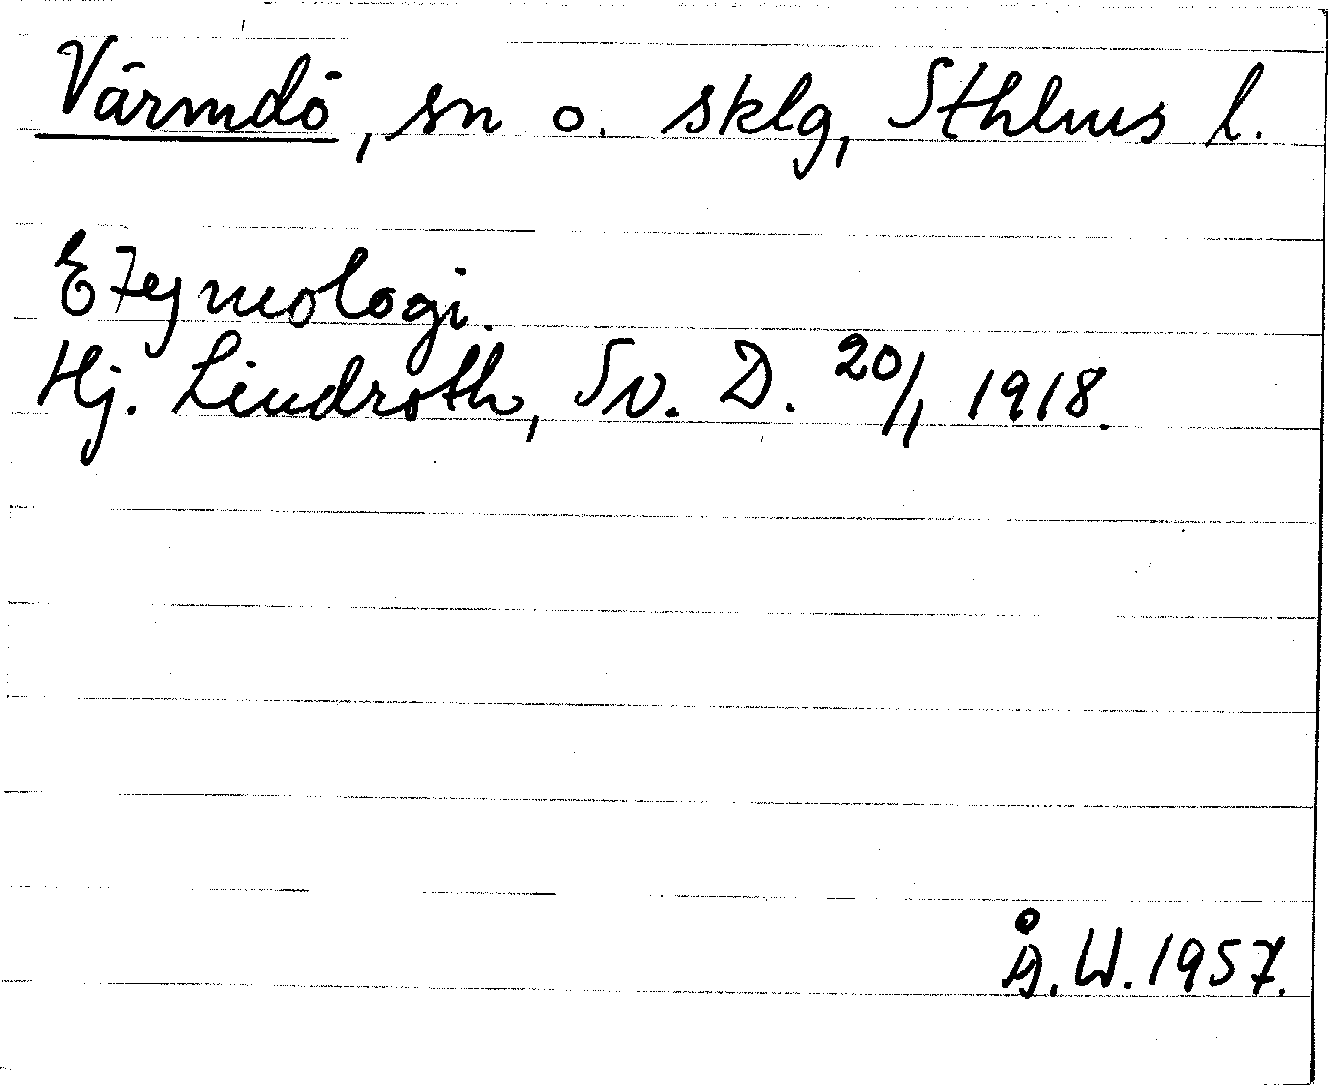 Värmdö, sn o. sklg, Sthlms l.
Etymologi.
Hj. Lindroth, Sv. D. 20/1 1918.
Å. W. 1957.